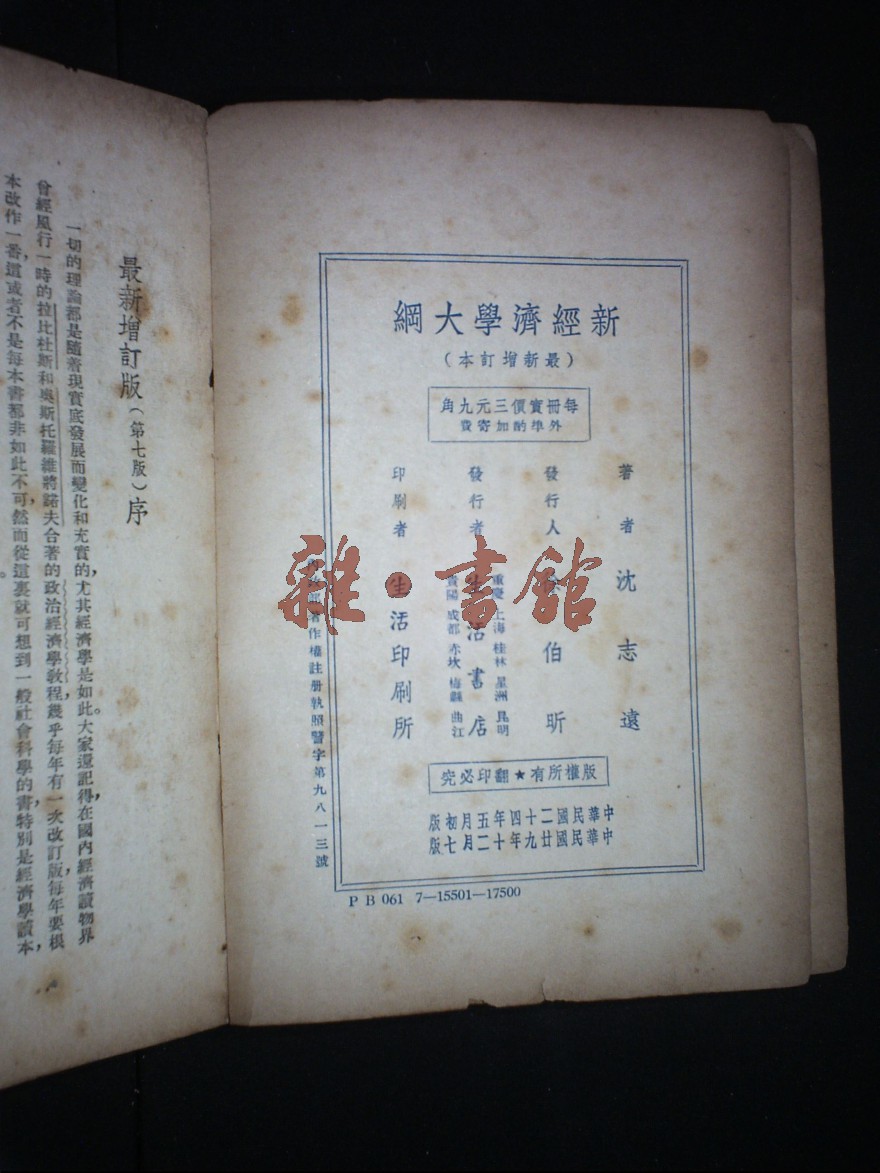 新經濟學大綱
(最新增訂本)
每冊實價三元九角
外埠酌加寄費
著者 沈志遠
發行人 伯昕
發行者 生活書店
重慶 上海 桂林 星洲 昆明
貴陽 成都 赤坎 梅縣 曲江
印刷者 生活印刷所
版權所有★翻印必究
中華民國二十四年五月初版
中華民國廿九年十二月七版
部著作權註冊執照警字第九八一三號
P B 061 7—15501—17500
最新增訂版(第七版)序
一切的理論都是隨着現實底發展而變化和充實的,尤其經濟學是如此。大家還記得在國內經濟讀物界
曾經風行一時的拉比杜斯和奧斯托羅維將諾夫合著的政治經濟學教程,幾乎每年有一次改訂版,每年要根
本改作一番,這或者不是每本書都非如此不可,然而從這裏就可想到一般社會科學的書,特別是經濟學讀本,
雜·書館